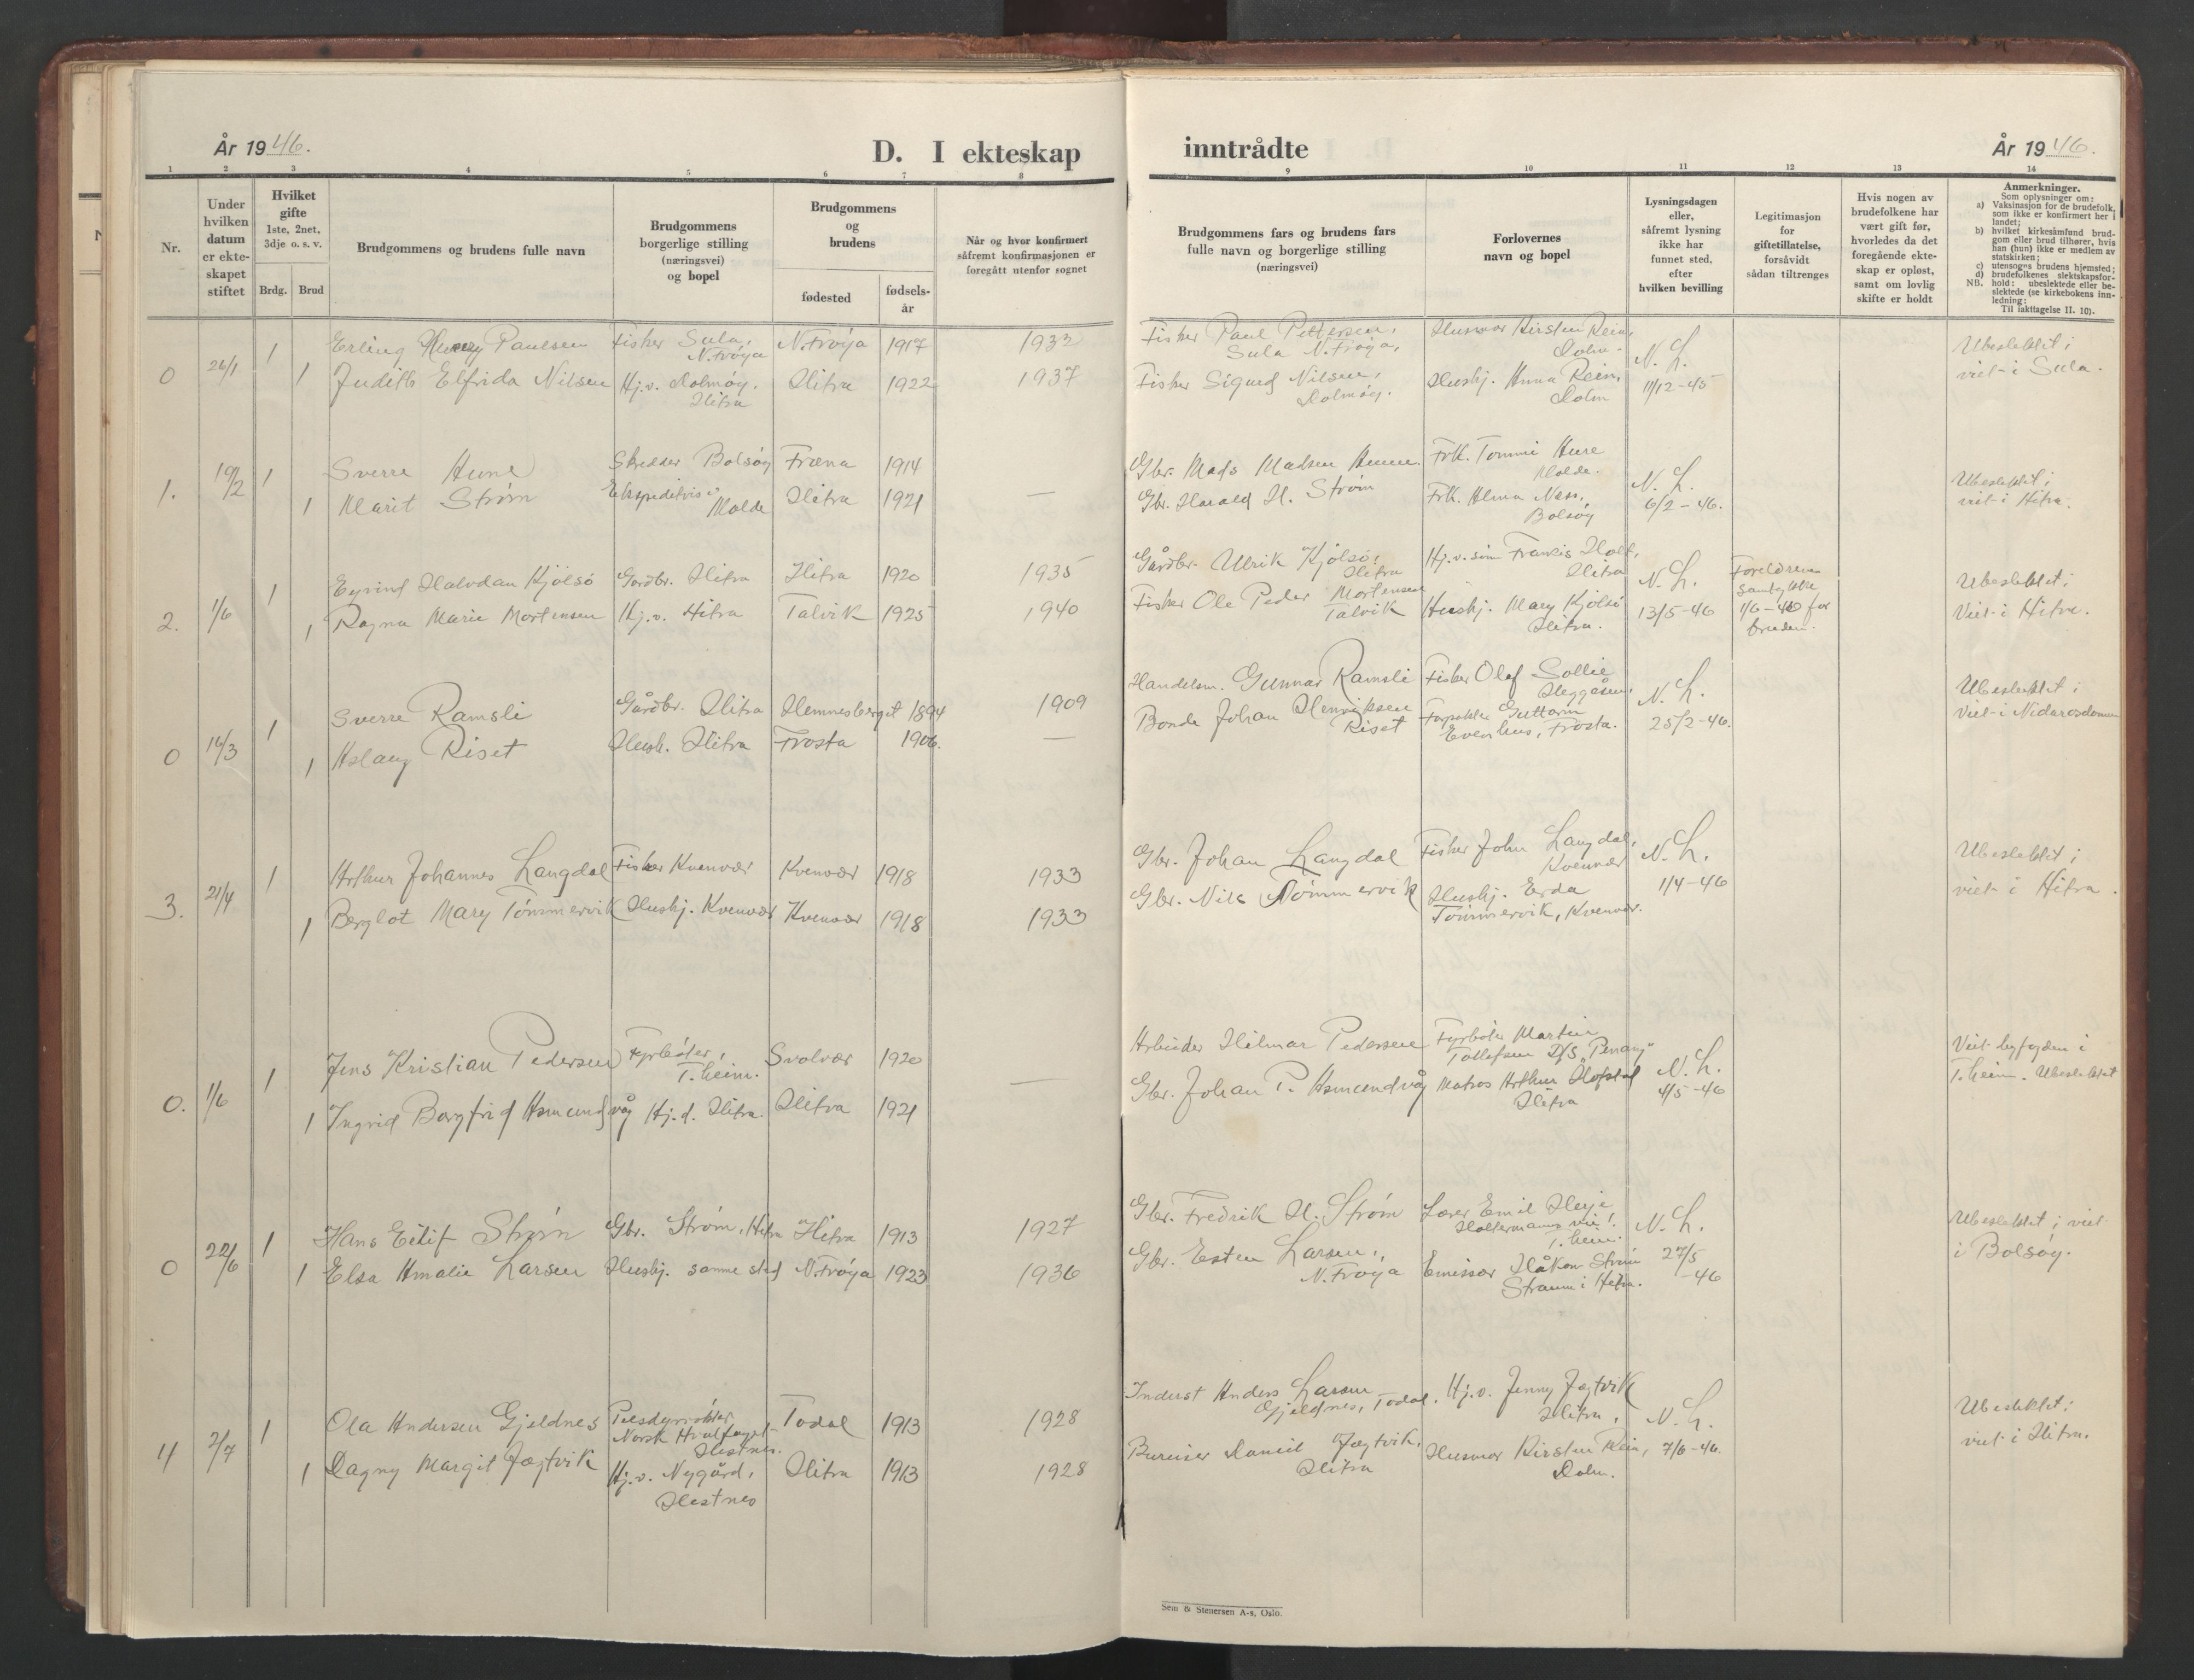 År 1946.
D. I ekteskap
inntrådte
År 1946.
1 2 3 4 5 6 7 8 9 10 11 12 13 14
Nr.
Under hvilken datum er ekte- skapet stiftet
Hvilket gifte 1ste, 2net, 3dje o. s. v.
Brdg. Brud
Brudgommens og brudens fulle navn
Brudgommens borgerlige stilling (næringsvei) og bopel
Brudgommens og brudens
fødested
fødsels- år
Når og hvor konfirmert såfremt konfirmasjonen er foregått utenfor sognet
Brudgommens fars og brudens fars fulle navn og borgerlige stilling (næringsvei)
Forlovernes navn og bopel
Lysningsdagen eller, såfremt lysning ikke har funnet sted, efter hvilken bevilling
Legitimasjon for giftetillatelse, forsåvidt sådan tiltrenges
Hvis nogen av brudefolkene har vært gift før, hvorledes da det foregående ekte- skap er opløst, samt om lovlig skifte er holdt
Anmerkninger.
Som oplysninger om:
a) Vaksinasjon for de brudefolk, som ikke er konfirmert her i landet;
b) hvilket kirkesamfund brud- gom eller brud tilhører, hvis han (hun) ikke er medlem av statskirken;
c) utensogns brudens hjemsted;
d) brudefolkenes slektskapsfor- hold: ubeslektede eller be- slektede (se kirkebokens inn- ledning:
NB.
Til iakttagelse II. 10).
0 26/1 1 Erling Henry Paulsen Fisker Sula, N.Frøya N.Frøya 1917 1932 Fisker Paul Pettersen, Sula N.Frøya, Husmor Kirsten Rein, Dolm. N. L. Ubeslektet;
1 Judith Elfrida Nilsen Hj.v. Dolmøy, Hitra Hitra 1922 1937 Fisker Sigurd Nilsen, Dolmøy. Hushj. Anna Rein, Dolm 11/12-45 viet i Sula.
1. 10/2 1 Sverre Hune Skredder Bolsøy Fræna 1914 Gbr. Mads Madsen Frk. Tommi Hure Molde. N. L. Ubeslektet;
1 Marit Strøm Molde Hitra 1921 — Gbr. Harald H. Strøm Frk. Alma Næss, Bolsøy 6/2-46. viet i Hitra.
2. 1/6 1 Eyvind Halvdan Kjølsø Gårdbr. Hitra Hitra 1920 1935 Gårdbr. Ulrik Kjølsø, Hitra Francis Holt, Hitra N. L. Foreldrenes samtykke Ubeslektet;
1 Ragna Marie Mortensen Hj.v. Hitra Talvik 1925 1940 Fisker Ole Peder Mortensen Talvik Hushj. Mary Kjølsø Hitra. 13/5-46 1/6-46 for bruden. Viet i Hitra.
0 16/3 1 Sverre Ramsli Gårdbr. Hitra Hemnesberget 1894 1909 Handelsm. Gunnar Ramsli Fisker Olaf Sollie Heggåsen, N. L. Ubeslektet;
1 Aslaug Riset Hush. Hitra Frosta 1906. — Bonde Johan Henriksen Riset Forpakter Guttorm Evenhus, Frosta. 25/2-46. Viet i Nidarosdomen
3. 21/4 1 Arthur Johannes Langdal Fisker Kvenvær Kvenvær 1918 1933 Gbr. Johan Langdal Fisker John Langdal, Kvenvær N. L. Ubeslektet;
1 Berglot Mary Tømmervik Hushj. Kvenvær Kvenvær 1918 1933 Gbr. Nils Tømmervik Hushj. Erda Tømmervik, Kvenvær. 1/4-46 viet i Hitra.
0. 1/6 1 Jens Kristian Pedersen Fyrbøter, T.heim. Svolvær 1920 — Arbeider Hilmar Pedersen Fyrbøter Martin Tollefsen D/S "Penang" N. L. Viet byfogden i
1 Ingrid Borgfrid Asmundvåg Hj.d. Hitra. Hitra 1921 Gbr. Johan P. Asmundvåg Matros Arthur Hofstad Hitra 4/5-46 T.heim. Ubeslektet
0 22/6 1 Hans Eilif Strøm Gbr. Strøm, Hitra Hitra 1913 1927 Gbr. Fredrik H. Strøm Lærer Emil Herje T.heim. N. L. Ubeslektet; viet
1 Elsa Amalie Larsen Hushj. samme sted N.Frøya 1923 1936 Gbr. Esten Larsen, N.Frøya Emissær Håkon Strøm Straum i Hitra. 27/5-46 i Bolsøy.
4 2/7 1 Ola Andersen Gjeldnes Pelsdyrrøkter Norsk Hvalfangst- Hestnes. Todal 1913 1928 Inderst Anders Larsen Gjeldnes, Todal. Hj.v. Jenny Jægtvik Hitra, N. L. Ubeslektet;
1 Dagny Margit Jægtvik Hj.v. Nygård, Hestnes Hitra 1913 1928 Bureiser Daniel Jægtvik, Hitra Husmor Kirsten Rein, Dolm. 7/6-46. viet i Hitra.
Sem & Stenersen A-s, Oslo.